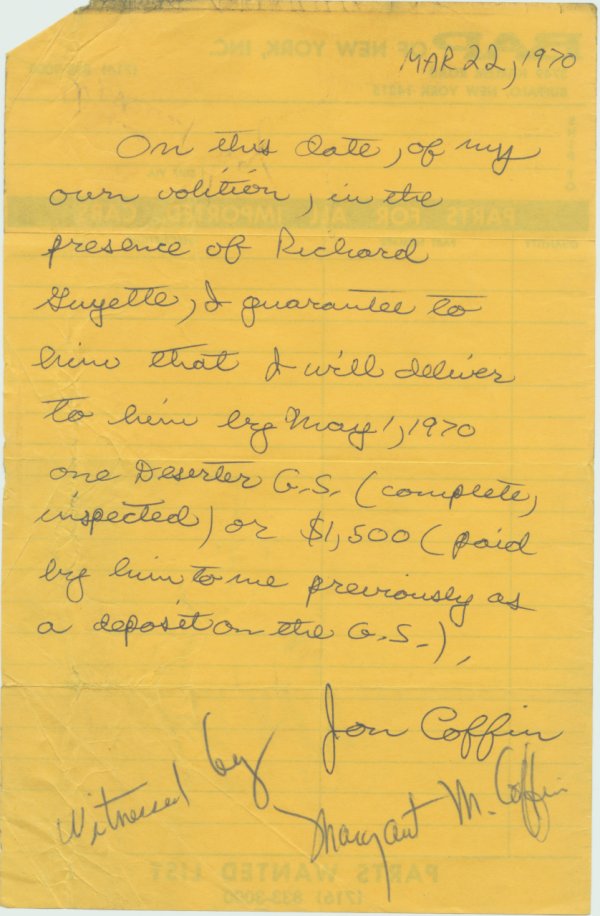 MAR 22, 1970
On this date, of my
own volition, in the
presence of Richard
Guyette, I guarantee to
him that I will deliver
to him by May 1, 1970
one Deserter G.S. (complete,
inspected) or $1,500 (paid
by him to me previously as
a deposit on the G.S.).
Jon Coffin
Witnessed by
Margaret M. Coffin
OF NEW YORK, INC.
BUFFALO, NEW YORK 14215
PARTS FOR ALL IMPORTED CARS
PARTS WANTED LIST
(716) 833-3000